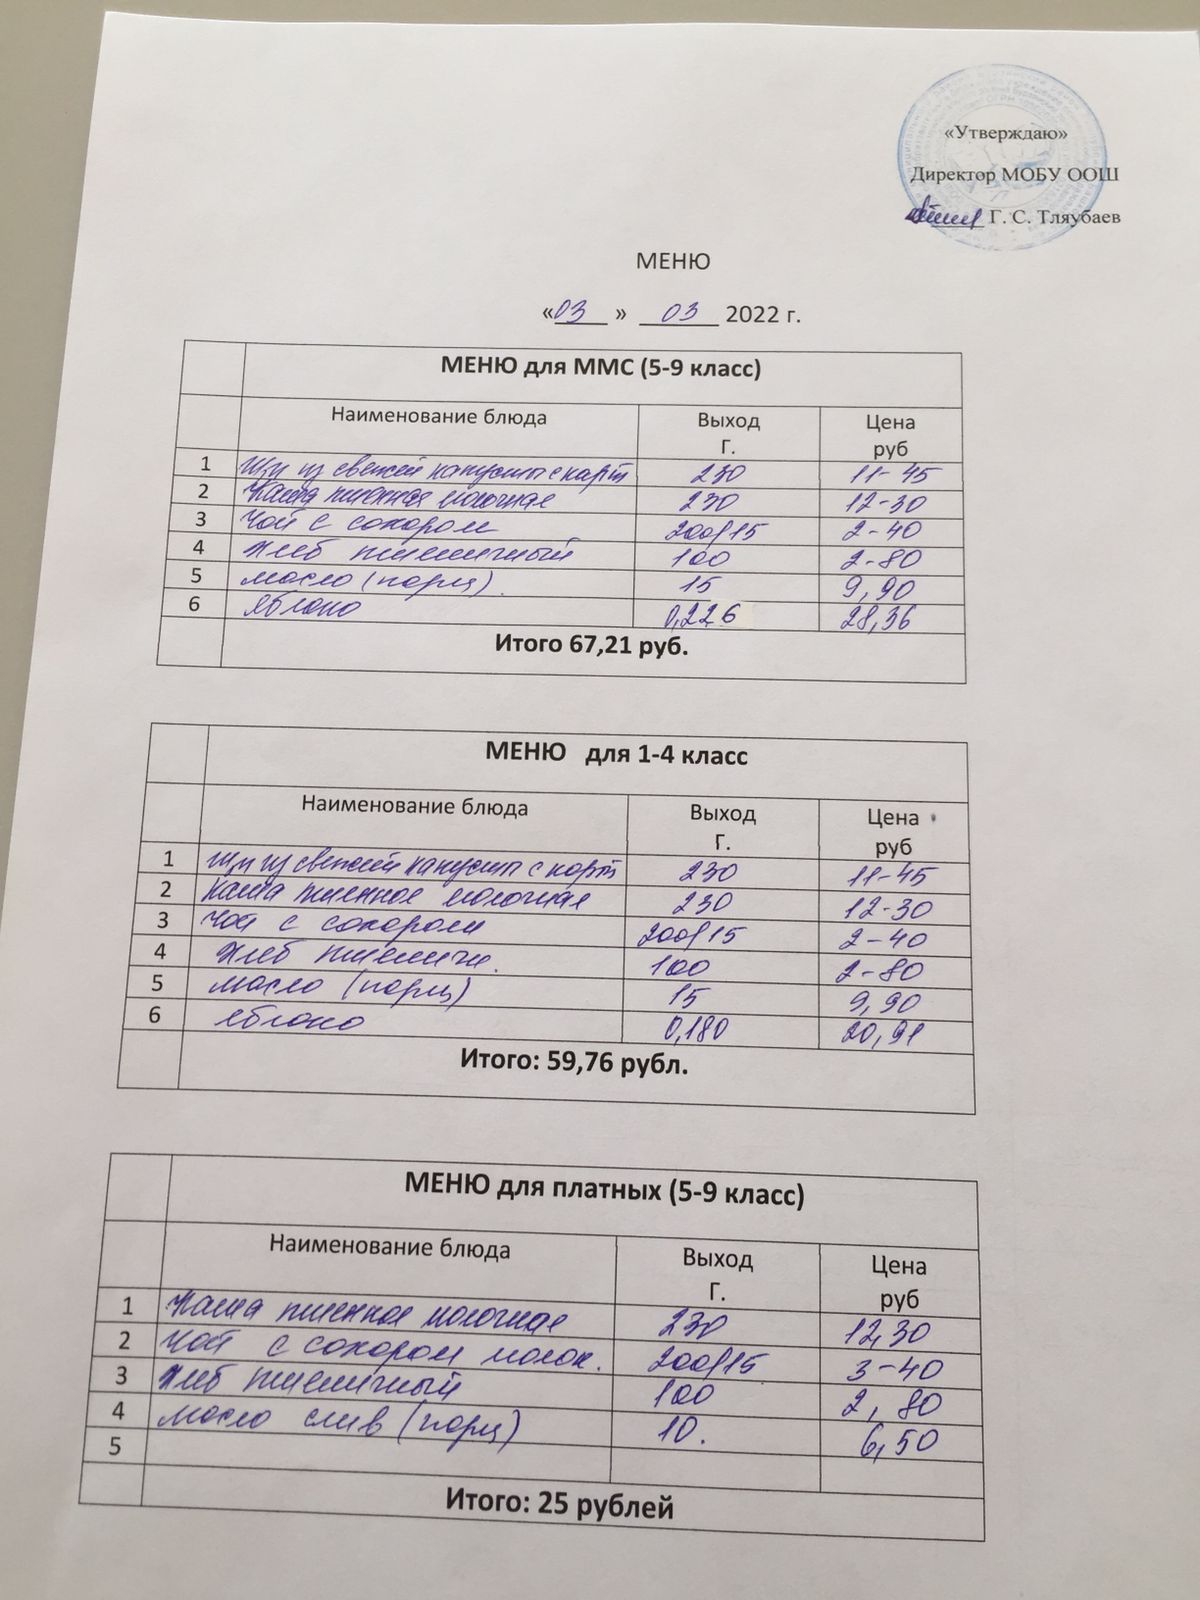 «Утверждаю»
Директор МОБУ ООШ
Г. С. Тляубаев
МЕНЮ
«03» 03 2022 г.
МЕНЮ для ММС (5-9 класс)
Наименование блюда Выход Г. Цена руб
1 Щи из свежей капусты с карт 230 11-45
2 Каша пшенная молочная 230 12-30
3 Чай с сахаром 200/15 2-40
4 Хлеб пшеничный 100 2-80
5 масло (порц). 15 9,90
6 Яблоко 0,226 28,36
Итого 67,21 руб.
МЕНЮ для 1-4 класс
Наименование блюда Выход Г. Цена руб
1 Щи из свежей капусты с карт 230 11-45
2 Каша пшенное молочная 230 12-30
3 Чай с сахаром 200/15 2-40
4 Хлеб пшеничн. 100 2-80
5 масло (порц) 15 9,90
6 Яблоко 0,180 20,91
Итого: 59,76 рубл.
МЕНЮ для платных (5-9 класс)
Наименование блюда Выход Г. Цена руб
1 Каша пшенное молочная 230 12,30
2 Чай с сахаром молок. 200/15 3-40
3 Хлеб пшеничный 100 2,80
4 масло слив (порц) 10. 6,50
5
Итого: 25 рублей